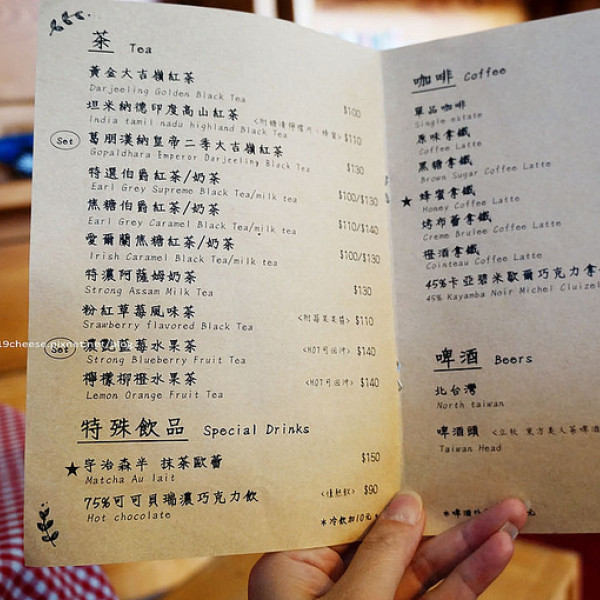 茶 Tea
黃金大吉嶺紅茶
Darjeeling Golden Black Tea
$100
坦米納德印度高山紅茶
India tamil nadu highland Black Tea
$110
Set
葛朋漢納皇帝二季大吉嶺紅茶
Gopaldhara Emperor Darjeeling Black Tea
$130
特選伯爵紅茶/奶茶
Earl Grey Supreme Black Tea/milk tea
$100/$130
焦糖伯爵紅茶/奶茶
Earl Grey Caramel Black Tea/milk tea
$110/$140
愛爾蘭焦糖紅茶/奶茶
Irish Caramel Black Tea/milk tea
$100/$130
特濃阿薩姆奶茶
Strong Assam Milk Tea
$130
粉紅草莓風味茶
Srawberry flavored Black Tea
<附莓果果醬> $110
Set
濃點藍莓水果茶
Strong Blueberry Fruit Tea
<HOT可回沖> $140
檸檬柳橙水果茶
Lemon Orange Fruit Tea
<HOT可回沖> $140
特殊飲品 Special Drinks
★宇治森半 抹茶歐蕾
Matcha Au lait
$150
75%可可貝瑞濃巧克力飲
Hot chocolate
<僅熱飲> $90
*冷飲加10元*
咖啡 Coffee
單品咖啡
Single estate
原味拿鐵
Coffee Latte
黑糖拿鐵
Brown Sugar Coffee Latte
★蜂蜜拿鐵
Honey Coffee Latte
烤布蕾拿鐵
Creme Brulee Coffee Latte
橙酒拿鐵
Cointeau Coffee Latte
45%卡亞碧米歐爾巧克力拿
45% Kayamba Noir Michel Cluizel
啤酒 Beers
北台灣
North taiwan
啤酒頭
Taiwan Head